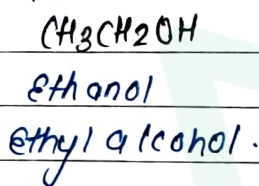 CH3CH2OH
Ethanol
Ethyl alcohol.